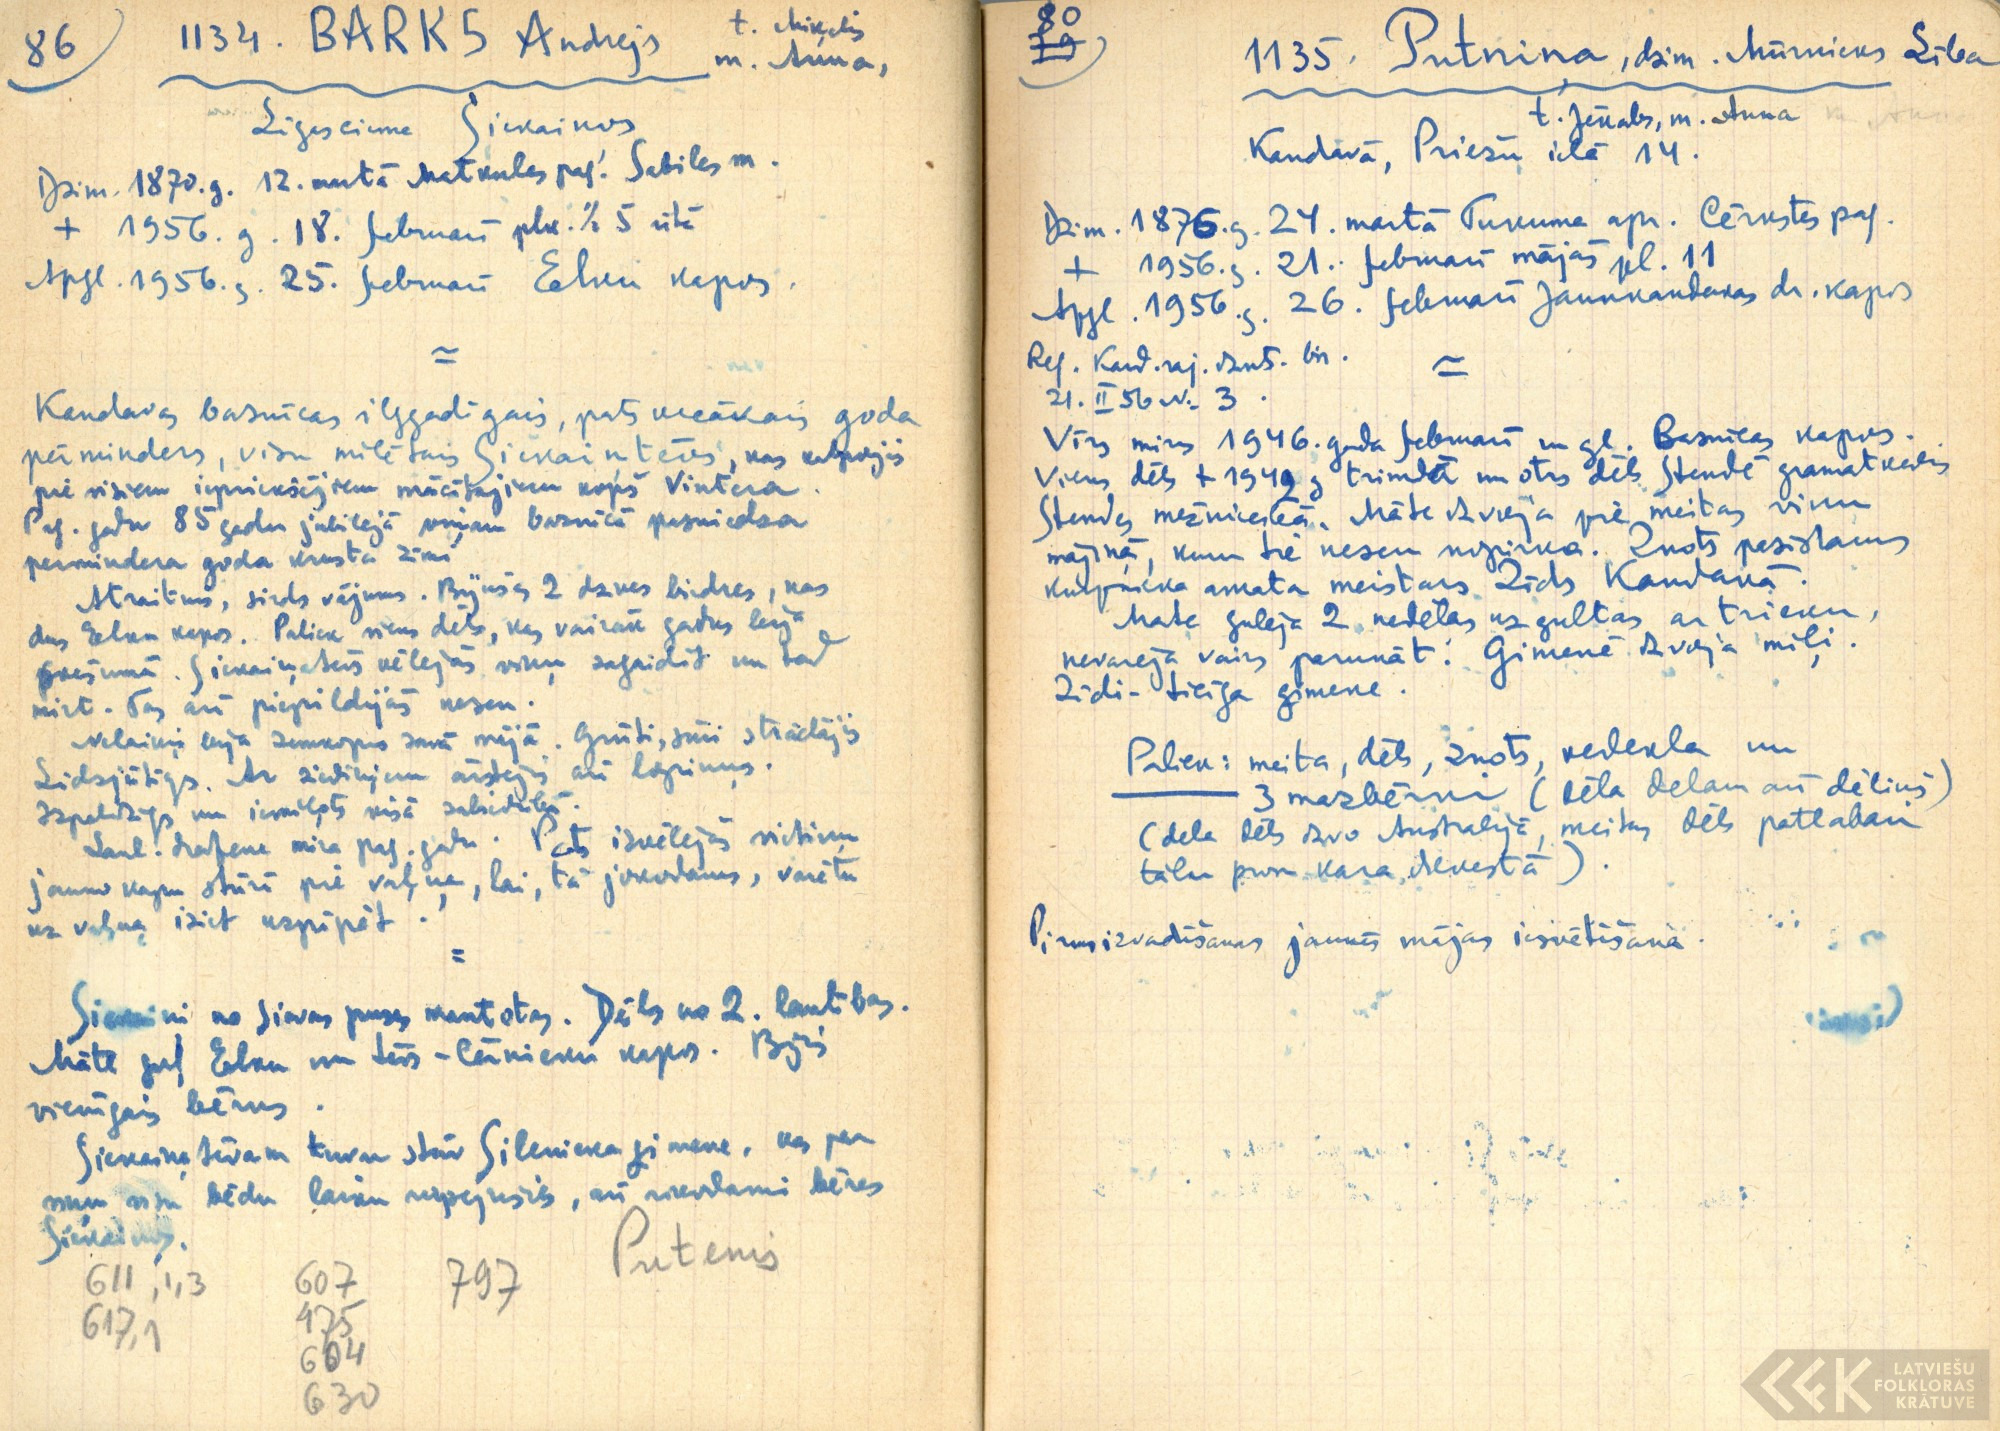 86
1134. BARKS Andrejs
t. Miķelis
m. Anna,
Līgasciema Siekaiņos
Dzim. 1870.g. 12. martā Matkules pag. Sabiles m.
+ 1956. g. 18. februarī plk. ½ 5 rītā
Apgl. 1956.g. 25. februarī Eļku kapos.
=
Kandavas baznīcas ilggadīgais, pats vecākais goda
pērminders, visu mīlētais Siekaiņtēvs, kas kalpojis
pie visiem iepriekšējiem mācītājiem kopš Vintera.
Pag. gadu 85 gadu jubilejā viņam baznīcā pasniedza
permindera goda krusta zīmi
Atraitnis, sirds vājums. Bijušas 2 dzīves biedres, kas
dus Eļku kapos. Paliek viens dēls, kas vairāk gadus bija
svešumā. Siekaiņtēvs vēlējās viņu sagaidīt un tad
mirt. Tas arī piepildījās nesen.
Nelaiķis bija zemkopis savā mājā. Grūti, sūri strādājis
Līdzjūtīgs. Ar ziediņiem ārstējis arī lopiņus.
Izpalīdzīgs un iemīļots visā sabiedrībā.
Laul. draudzene mira pag. gadu. Pats izvēlējās vietiņu
jauno kapu stūrī pie vaļņa, lai, tā jokodams, varētu
uz vaļņa iziet uzpīpēt.
=
Siekaiņi no sievas puses mantotas. Dēls no 2. laulības.
Māte guļ Eļku un tēvs - Cērnieku kapos. Bijis
vienīgais bērns.
Siekaiņa tēvam tuvu stāv Silenieka ģimene, kas par
viņu visu bēdu laiku rūpējusies, arī rīkodami bēres
Siekaiņos.
611, 1, 3 607 797 Putenis
617, 1 475
604
630
80
79
1135. Putniņa, dzim. Mūrnieks Lība
t. Jēkabs, m. Anna
Kandavā, Priežu ielā 14.
Dzim. 1876.g. 24. martā Tukuma apr. Cērkstes pag.
+ 1956.g. 21. februarī mājās pl. 11
Apgl. 1956.g. 26. februarī Jaunkandavas dr. kapos
Reģ. Kand. raj. dzimt. bir.
21. II 56 Nr. 3.
=
Vīrs miris 1946. gada februarī un gl. Baznīcas kapos.
Viens dēls + 1949 g trimdā un otrs dēls Stendē grāmatvedis
Stendes mežniecībā. Māte dzīvoja pie meitas viņu
mājiņā, kuru tie nesen nopirka. Znots pazīstams
kurpnieka amata meistars Zīds Kandavā.
Māte gulēja 2 nedēļas uz gultas ar trieku,
nevarēja vairs parunāt. Ģimenē dzīvoja mīļi.
Zīdi - ticīga ģimene.
Paliek: meita, dēls, znots, vedekla un
3 mazbērni (dēla dēlam arī dēliņš)
(dēla dēls dzīvo Australijā, meitas dēls patlaban
tālu prom kara dienestā).
Pirms izvadīšanas jaunās mājas iesvētīšana.
LATVIEŠU
FOLKLORAS
KRĀTUVE